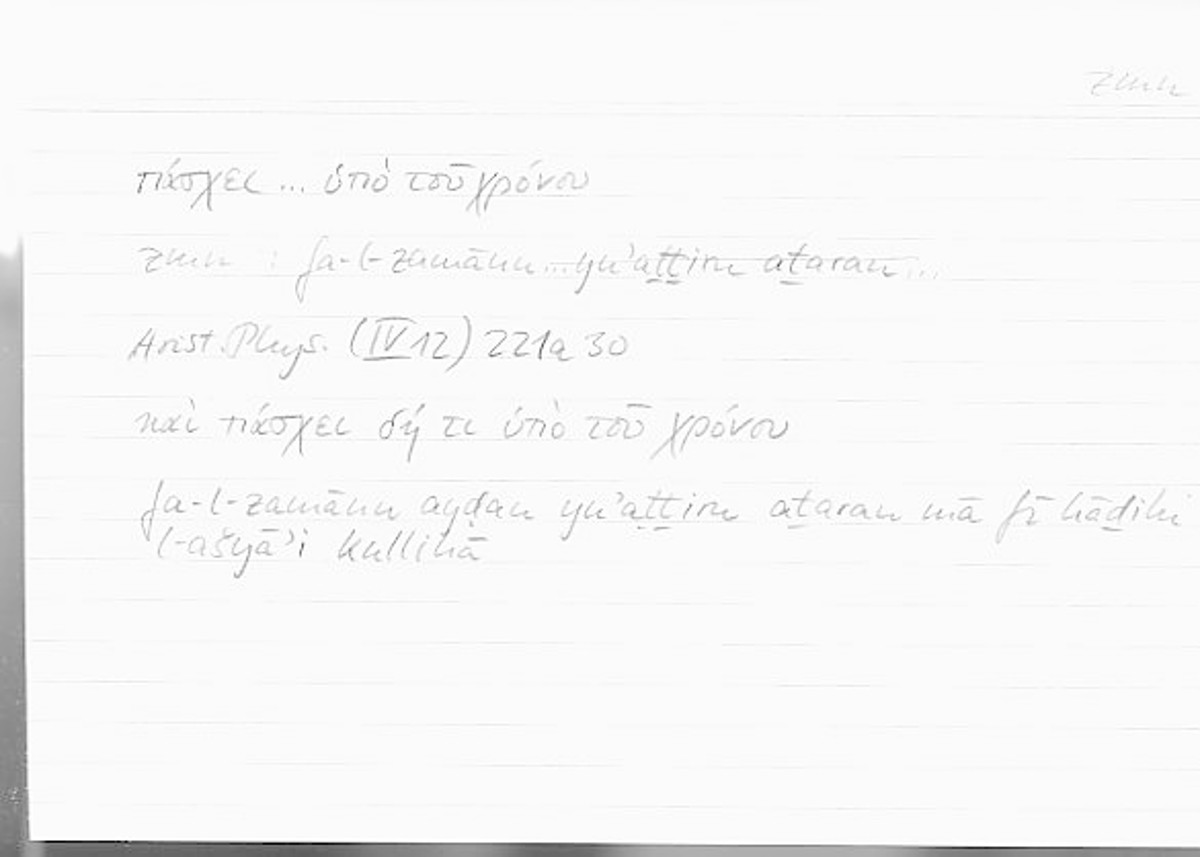 zmn
πάσχει ... ὑπὸ τοῦ χρόνου
zmn : fa-l-zamānu...yu'aṯṯiru aṯaran...
Arist. Phys. (IV 12) 221a 30
καὶ πάσχει δή τι ὑπὸ τοῦ χρόνου
fa-l-zamānu ayḍan yu'aṯṯiru aṯaran mā fī hāḏihi
l-ašyā'i kullihā